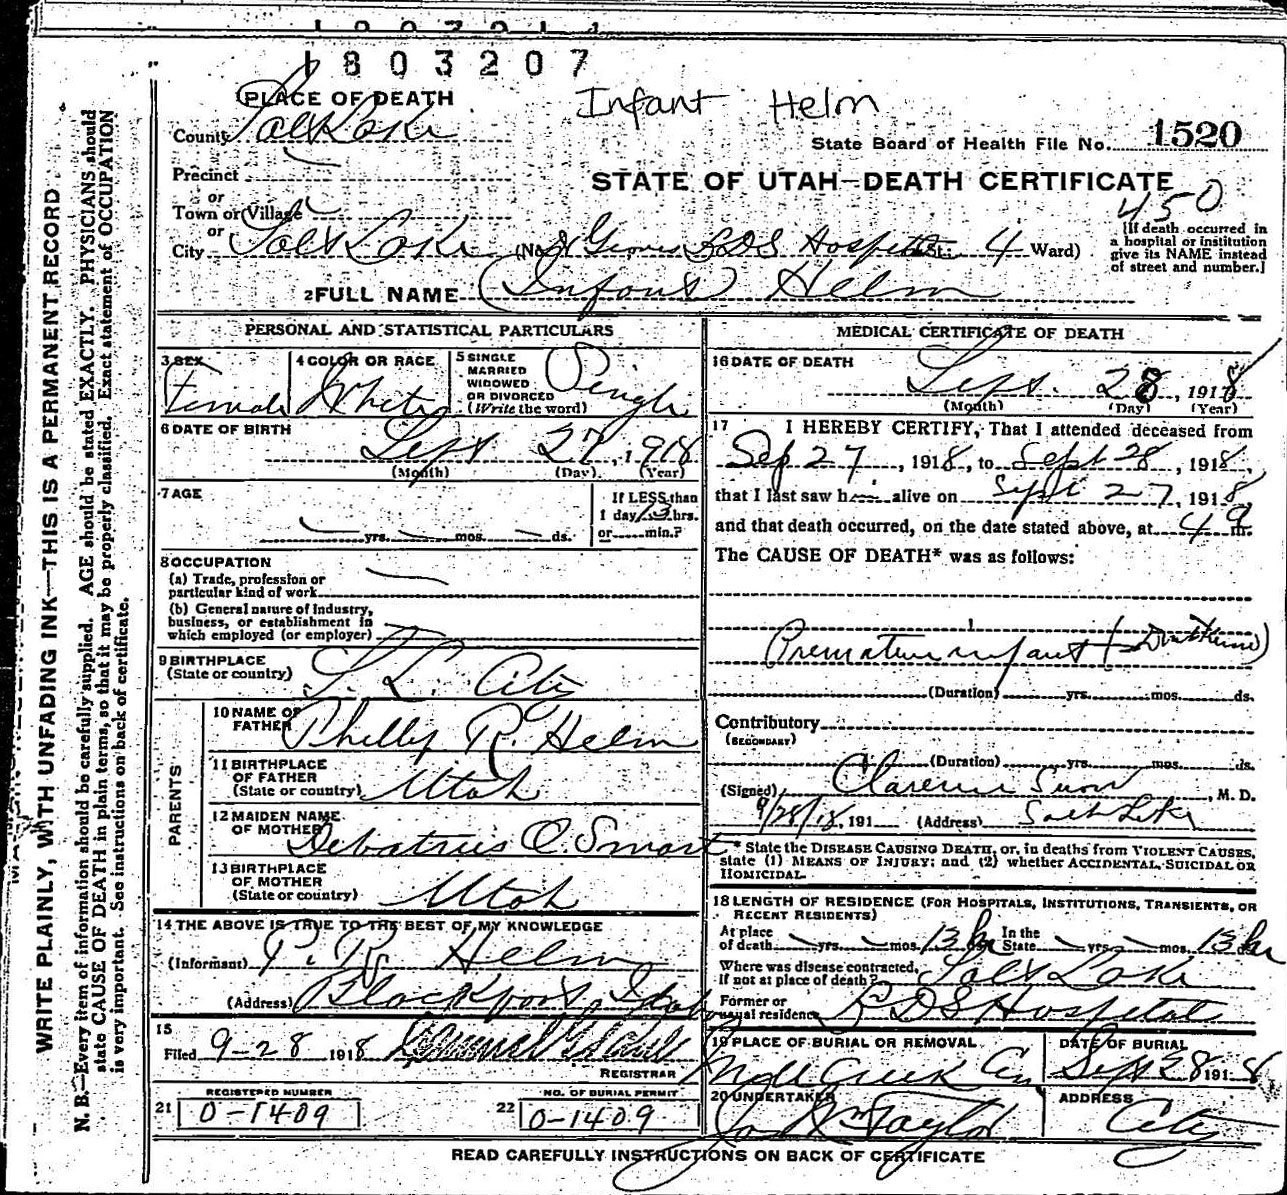 1803207
Infant Helm
PLACE OF DEATH
County Salt Lake
State Board of Health File No. 1520
Precinct
or
STATE OF UTAH—DEATH CERTIFICATE
450
Town or Village
or
City Salt Lake (No. Groves LDS Hospital St.; 4 Ward)
[If death occurred in
a hospital or institution
give its NAME instead
of street and number.]
2 FULL NAME (Infant) Helm
PERSONAL AND STATISTICAL PARTICULARS
3 SEX
Female
4 COLOR OR RACE
White
5 SINGLE
MARRIED
WIDOWED
OR DIVORCED
(Write the word)
Single
6 DATE OF BIRTH
Sept 27, 1918
(Month) (Day) (Year)
7 AGE
yrs. mos. ds.
If LESS than
1 day 13 hrs.
or min.?
8 OCCUPATION
(a) Trade, profession or
particular kind of work
(b) General nature of Industry,
business, or establishment in
which employed (or employer)
9 BIRTHPLACE
(State or country)
S. L. City
PARENTS
10 NAME OF
FATHER
R. Helm
11 BIRTHPLACE
OF FATHER
(State or country)
Utah
12 MAIDEN NAME
OF MOTHER
O. Smart
13 BIRTHPLACE
OF MOTHER
(State or country)
Utah
14 THE ABOVE IS TRUE TO THE BEST OF MY KNOWLEDGE
(Informant) P. R. Helm
(Address) Blackfoot, Idaho
15
Filed 9-28 1918
REGISTRAR
REGISTERED NUMBER
21 0-1409
NO. OF BURIAL PERMIT
22 0-1409
MEDICAL CERTIFICATE OF DEATH
16 DATE OF DEATH
Sept. 28, 1918
(Month) (Day) (Year)
17 I HEREBY CERTIFY, That I attended deceased from
Sep 27, 1918, to Sept 28, 1918,
that I last saw h alive on Sept 27, 1918
and that death occurred, on the date stated above, at 4 m.
The CAUSE OF DEATH* was as follows:
Premature infant
(Duration) yrs. mos. ds.
Contributory
(SECONDARY)
(Duration) yrs. mos. ds.
(Signed) Clarence Snow, M. D.
9/28/18, 191 (Address) Salt Lake
* State the DISEASE CAUSING DEATH, or, in deaths from VIOLENT CAUSES,
state (1) MEANS OF INJURY; and (2) whether ACCIDENTAL, SUICIDAL OR
HOMICIDAL.
18 LENGTH OF RESIDENCE (FOR HOSPITALS, INSTITUTIONS, TRANSIENTS, OR
RECENT RESIDENTS)
At place
of death yrs. mos. 13 hr In the
State yrs. mos. 13 hr
Where was disease contracted,
if not at place of death? Salt Lake
Former or
usual residence LDS Hospital
19 PLACE OF BURIAL OR REMOVAL
Mill Creek Cem
DATE OF BURIAL
Sept 28 1918
20 UNDERTAKER
Taylor
ADDRESS
City
READ CAREFULLY INSTRUCTIONS ON BACK OF CERTIFICATE
WRITE PLAINLY, WITH UNFADING INK—THIS IS A PERMANENT RECORD
N. B.—Every item of information should be carefully supplied. AGE should be stated EXACTLY. PHYSICIANS should
state CAUSE OF DEATH in plain terms, so that it may be properly classified. Exact statement of OCCUPATION
is very important. See instructions on back of certificate.